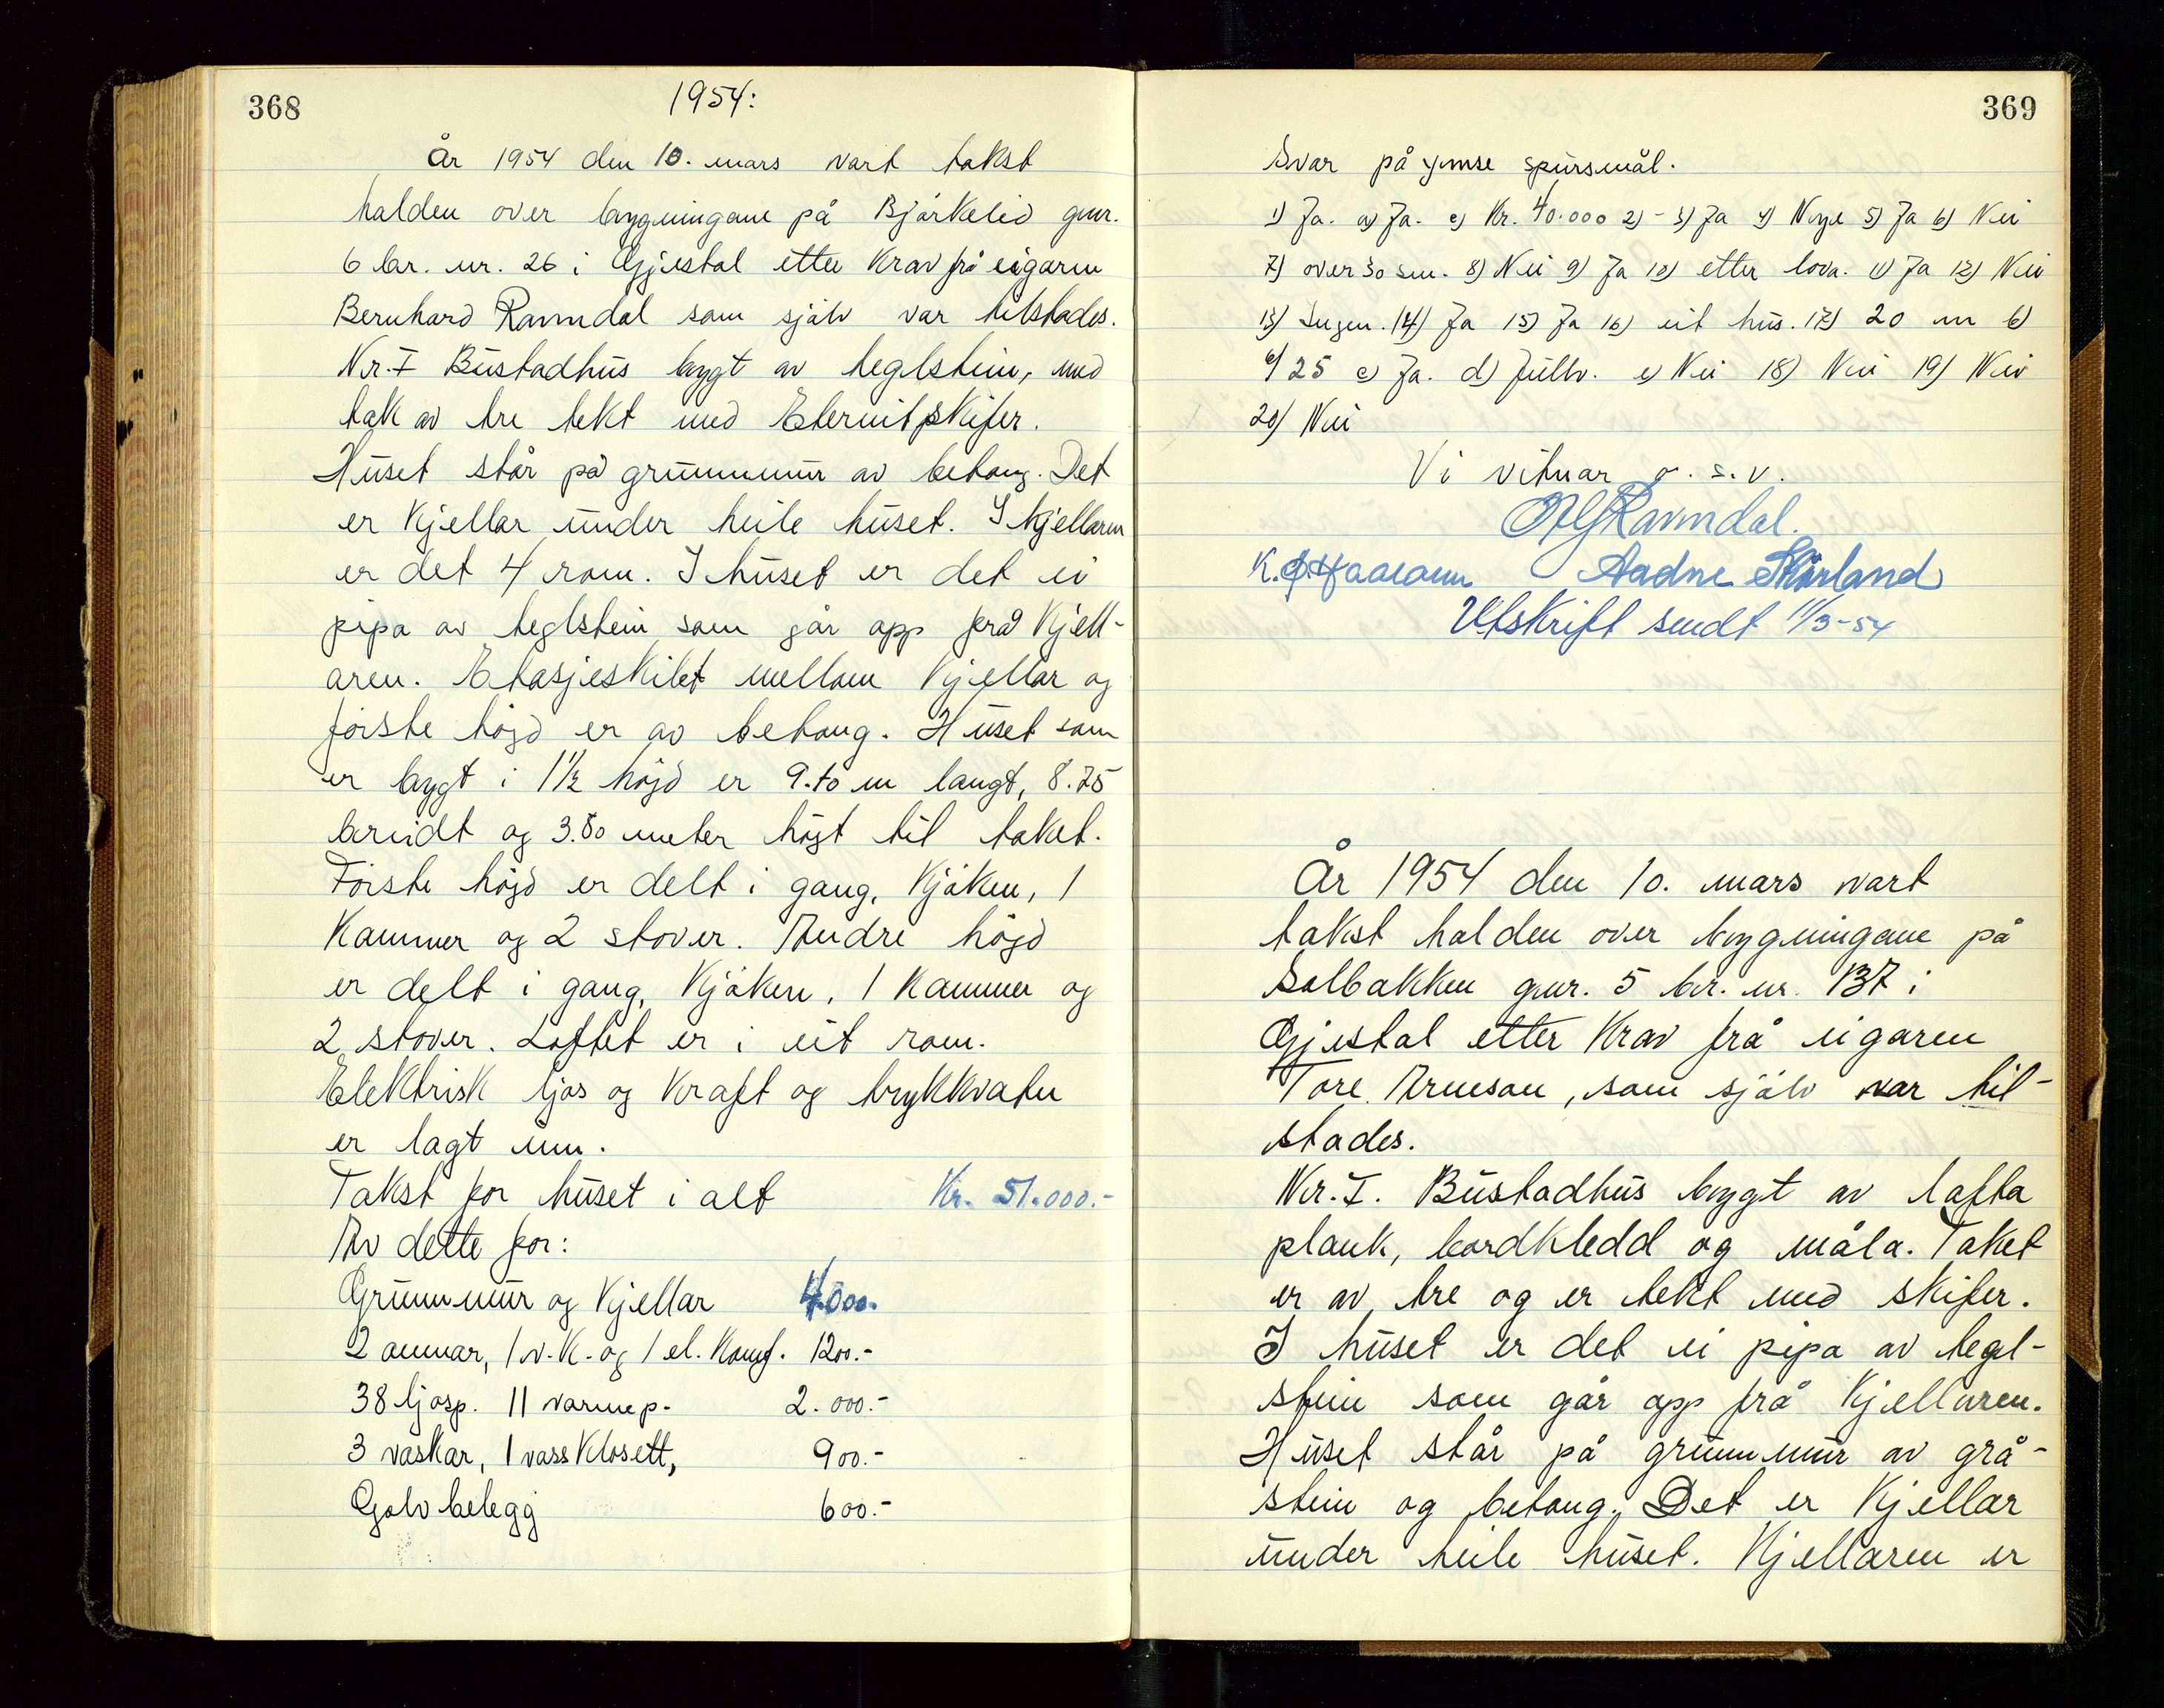 368
1954:
År 1954 den 10. mars vart takst
halden over bygningane på Bjørkelid gnr.
6 br. nr. 26 i Gjestal etter krav frå eigaren
Bernhard Ravndal som själv var tilstades.
Nr. I Bustadhus bygt av teglstein, med
tak av tre tekt med Eternitskifer.
Huset står på grunnmur av betong. Det
er kjellar under heile huset. I kjellaren
er det 4 rom. I huset er det ei
pipa av teglstein som går opp frå kjell-
aren. Etasjeskilet mellom kjellar og
første högd er av betong. Huset som
er bygt i 1½ högd er 9.40 m langt, 8.75
breidt og 3.80 meter högt til taket.
Første högd er delt i gang, kjøken, 1
kammer og 2 stover. Andre högd
er delt i gang, kjøken, 1 kammer og
2 stover. Loftet er i eit rom.
Elektrisk ljos og kraft og trykkvatn
er lagt inn.
Takst for huset i alt Kr. 51.000.-
Av dette for:
Grunnmur og kjellar 4.000.
2 omnar, 1 v.k. og 1 el. komf. 1200.-
38 ljosp. 11 varmep. 2.000.-
3 vaskar, 1 vassklosett, 900.-
Golvbelegg 600.-
369
Svar på ymse spursmål.
1) Ja. a) Ja. c) Kr. 40.000 2) - 3) Ja 4) Nøye 5) Ja 6) Nei
7) over 30 sm. 8) Nei 9) Ja 10) etter lova. 11) Ja 12) Nei
13) Ingen. 14) Ja 15) Ja 16) eit hus. 17) 20 m b)
25 c) Ja. d) Fullv. e) Nei 18) Nei 19) Nei
20) Nei
Vi vitnar o.s.v.
Ravndal.
K. Aadne Skårland
Utskrift sendt 11/3-54
År 1954 den 10. mars vart
takst halden over bygningane på
Solbakken gnr. 5 br. nr. 137 i
Gjestal etter krav frå eigaren
Tore Arneson, som själv var til-
stades.
Nr. I. Bustadhus bygt av lafta
plank, bordkledd og måla. Taket
er av tre og er tekt med skifer.
I huset er det ei pipa av tegl-
stein som går opp frå kjellaren.
Huset står på grunnmur av grå-
stein og betong. Det er kjellar
under heile huset. Kjellaren er